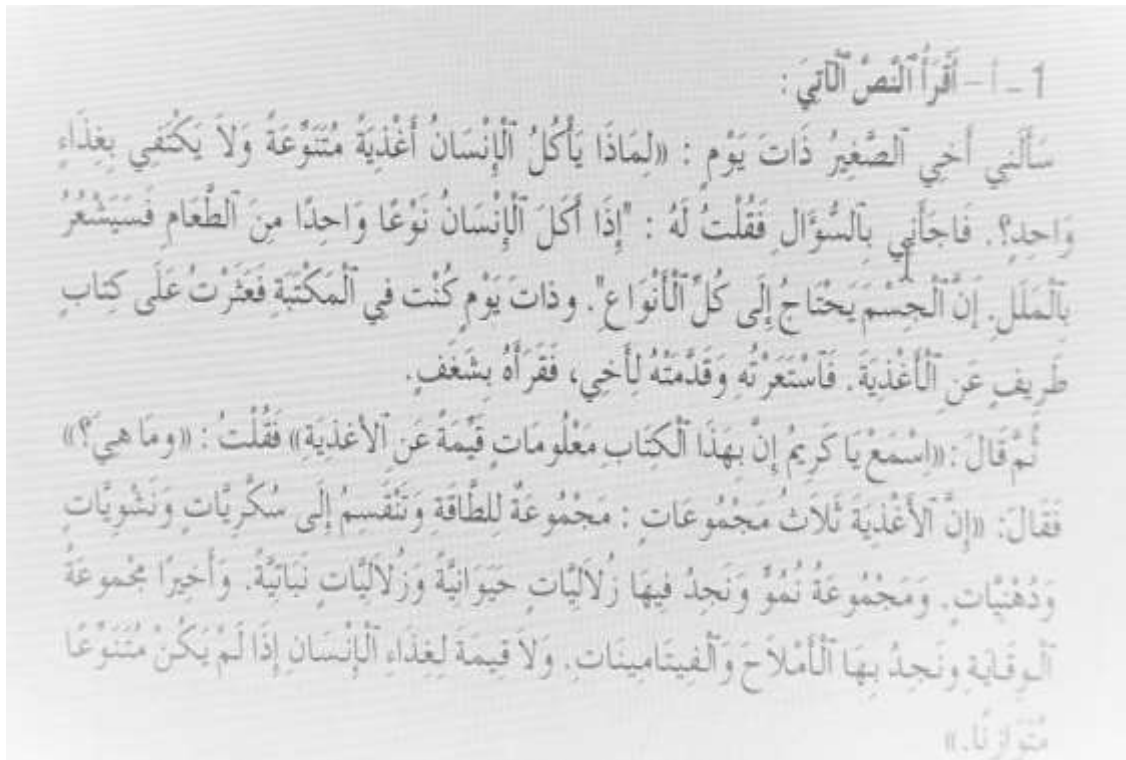 1 - أ - أَقْرَأُ ٱلنَّصَّ ٱلْآتِيَ :
سَأَلَنِي أَخِي ٱلصَّغِيرُ ذَاتَ يَوْمٍ : «لِمَاذَا يَأْكُلُ ٱلْإِنْسَانُ أَغْذِيَةً مُتَنَوِّعَةً وَلاَ يَكْتَفِي بِغِذَاءٍ
وَاحِدٍ؟. فَاجَأَنِي بِٱلسُّؤَالِ فَقُلْتُ لَهُ : "إِذَا أَكَلَ ٱلْإِنْسَانُ نَوْعًا وَاحِدًا مِنَ ٱلطَّعَامِ فَسَيَشْعُرُ
بِٱلْمَلَلِ. إِنَّ ٱلْجِسْمَ يَحْتَاجُ إِلَى كُلِّ ٱلْأَنْوَاعِ". وذَاتَ يَوْمٍ كُنْت فِي ٱلْمَكْتَبَةِ فَعَثَرْتُ عَلَى كِتَابٍ
طَرِيفٍ عَنِ ٱلْأَغْذِيَةِ. فَٱسْتَعَرْتُهُ وَقَدَّمْتُهُ لِأَخِي، فَقَرَأَهُ بِشَغَفٍ.
ثُمَّ قَالَ : «اِسْمَعْ يَا كَرِيمُ إِنَّ بِهَذَا ٱلْكِتَابِ مَعْلُومَاتٍ قَيِّمَةً عَنِ ٱلْأَغْذِيَةِ» فَقُلْتُ : «ومَا هِيَ؟»
فَقَالَ: «إِنَّ ٱلْأَغْذِيَةَ ثَلاَثُ مَجْمُوعَاتٍ : مَجْمُوعَةٌ لِلطَّاقَةِ وَتَنْقَسِمُ إِلَى سُكَّرِيَّاتٍ وَنَشْوِيَّاتٍ
وَدُهْنِيَّاتٍ. وَمَجْمُوعَةُ نُمُوٍّ وَنَجِدُ فِيهَا زُلاَلِيَّاتٍ حَيَوَانِيَّةً وَزُلاَلِيَّاتٍ نَبَاتِيَّةً. وَأَخِيرًا مَجْموعَةُ
ٱلْوِقَايَةِ ونَجِدُ بِهَا ٱلْأَمْلاَحَ وَٱلْفِيتَامِينَاتِ. وَلاَ قِيمَةَ لِغِذَاءِ ٱلْإِنْسَانِ إِذَا لَمْ يَكُنْ مُتَنَوِّعًا
مُتَوَازِنًا.»